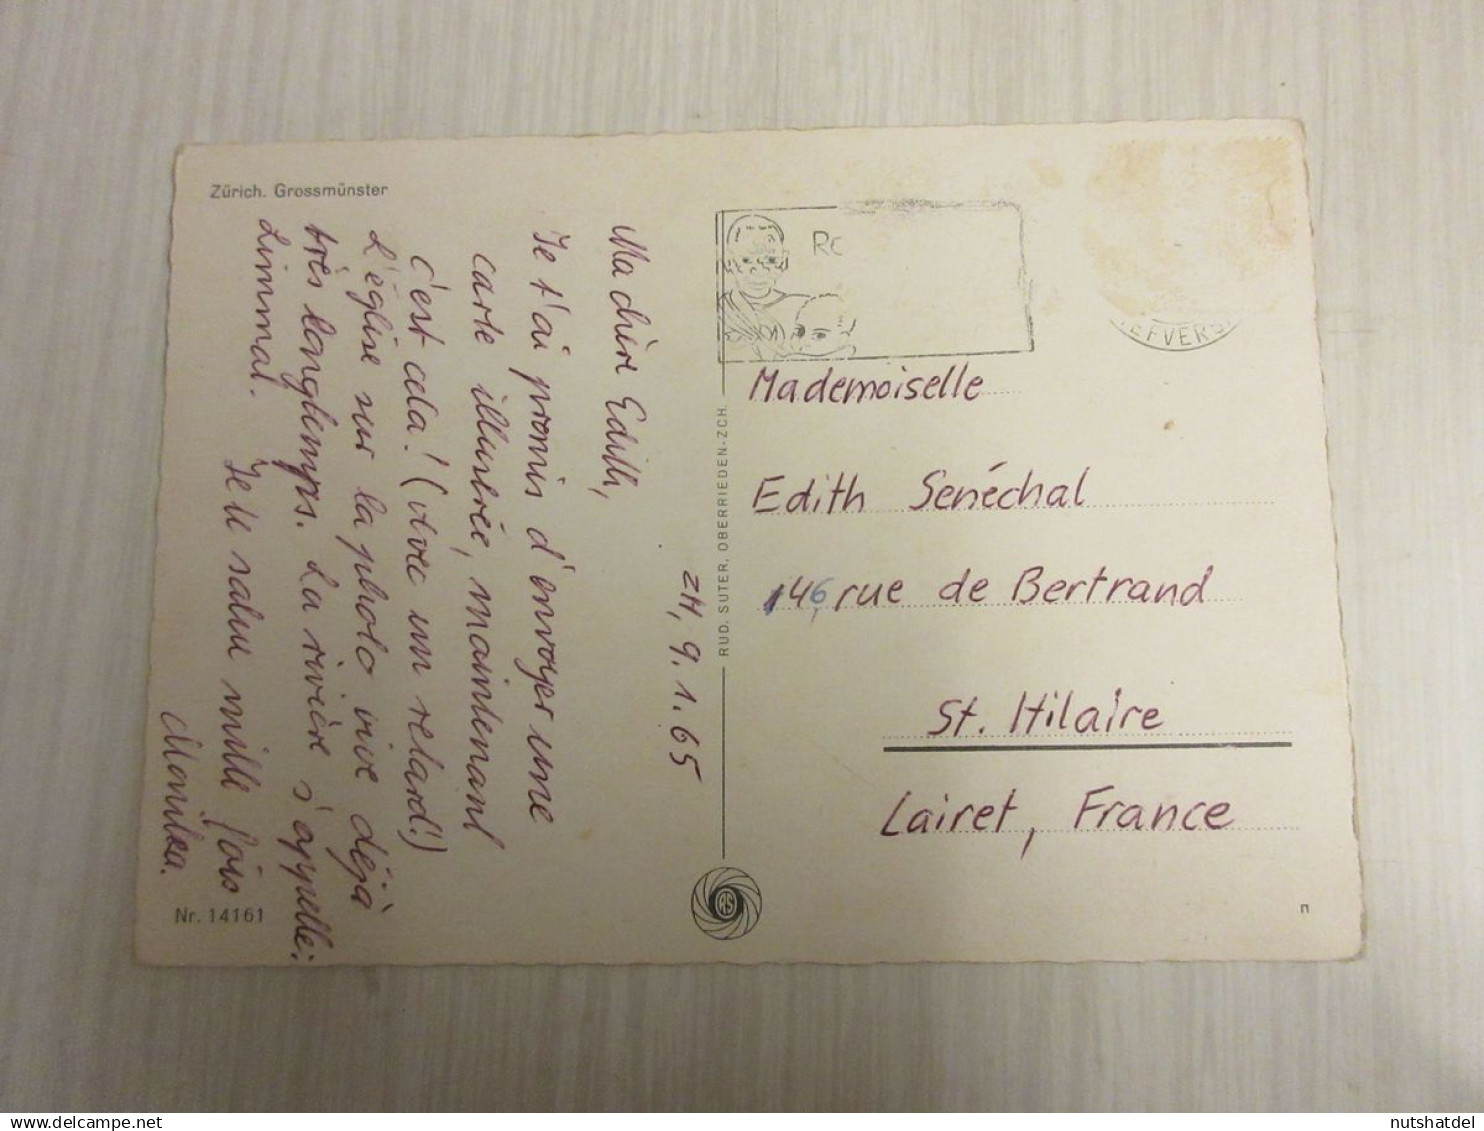 Zürich. Grossmünster
ZH, 9.1.65
Ma chère Edith,
Je t'ai promis d'envoyer une
carte illustrée, maintenant
c'est cela! (Avec un retard!)
L'église sur la photo vive déjà
très longtemps. La rivière s'appelle:
Limmat.
Je te salue mille fois
Monika.
Nr. 14161
RUD. SUTER, OBERRIEDEN-ZCH.
RS
Mademoiselle
Edith Senéchal
146, rue de Bertrand
St. Hilaire
Lairet, France
nutshatdel